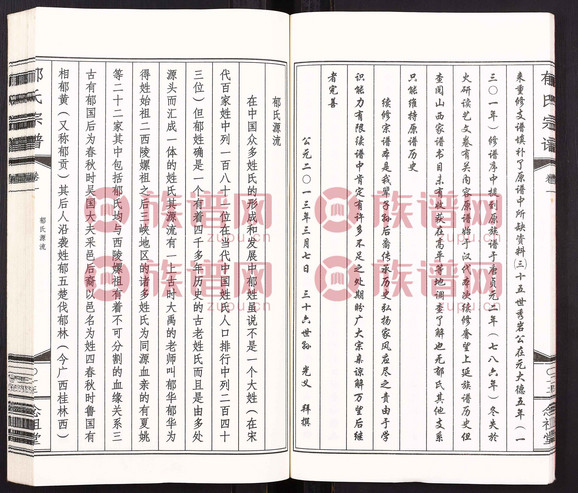 来重修支谱填补了原谱中所缺资料㈢十五世秀岩公在元大德五年(一
三〇一年)修谱序中提到原族谱于唐贞元二年(七八六年)冬失於
火研读艺文卷有关内容原谱始于汉代本次续修奢望上延族谱历史但
查阅山西家谱书目未有收获在高平等地调查了解也无郁氏其他支系
只能维持原谱历史
续修宗谱本是我辈子孙后裔传承历史弘扬家风应尽之责由于学
识能力有限续谱中肯定有许多不足之处期盼广大宗亲谅解万望后继
者完善
公元二〇一三年三月七日 三十六世孙 光义 拜撰
郁氏宗谱
念祖堂
郁氏宗谱
郁氏源流
念祖堂
郁氏源流
在中国众多姓氏的形成和发展中郁姓虽说不是一个大姓(在宋
代百家姓中列一百八十一位在当代中国姓氏人口排行中列二百四十
三位)但郁姓确是一个有着四千多年历史的古老姓氏而且是由多处
源头而汇成一体的姓氏其源流有一上古时大禹的老师叫郁华郁华为
得姓始祖二西陵嫘祖之后三峡地区的诸多姓氏为同源血亲的有夏姚
等二十二家其中包括郁氏均与西陵嫘祖有着不可分割的血缘关系三
古有郁国后为春秋时吴国大夫采邑后裔以邑名为姓四春秋时鲁国有
相郁黄(又称郁贡)其后人沿袭姓郁五楚伐郁林(今广西桂林西)